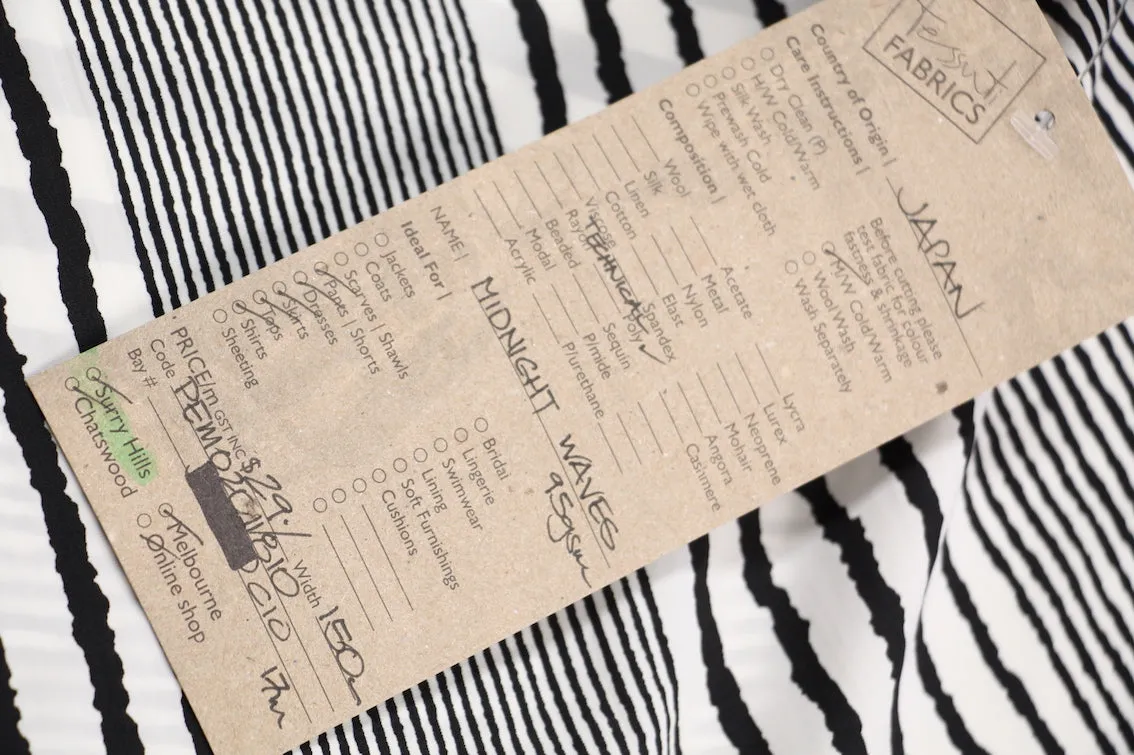 Tessuti
FABRICS
Country of Origin | JAPAN
Care Instructions |
Dry Clean (P)
H/W Cold/Warm
Silk Wash
Prewash Cold
Wipe with wet cloth
Before cutting please
test fabric for colour
fastness & shrinkage
M/W Cold/Warm
Wool Wash
Wash Separately
Composition |
Wool
Silk
Linen
Cotton
Viscose
Rayon
Beaded
Modal
Acrylic
TECHNICAL
Acetate
Metal
Nylon
Elast
Spandex
Poly ✓
Sequin
P/mide
P/urethane
Lycra
Lurex
Neoprene
Mohair
Angora
Cashmere
NAME | MIDNIGHT WAVES
95gsm
Ideal For |
Jackets
Coats
Scarves | Shawls
Pants | Shorts
Dresses
Skirts
Tops
Shirts
Sheeting
Bridal
Lingerie
Swimwear
Lining
Soft Furnishings
Cushions
PRICE/m GST INC $29.- Width 150
Code
Bay # C10 17m
Surry Hills
Chatswood
Melbourne
Online shop